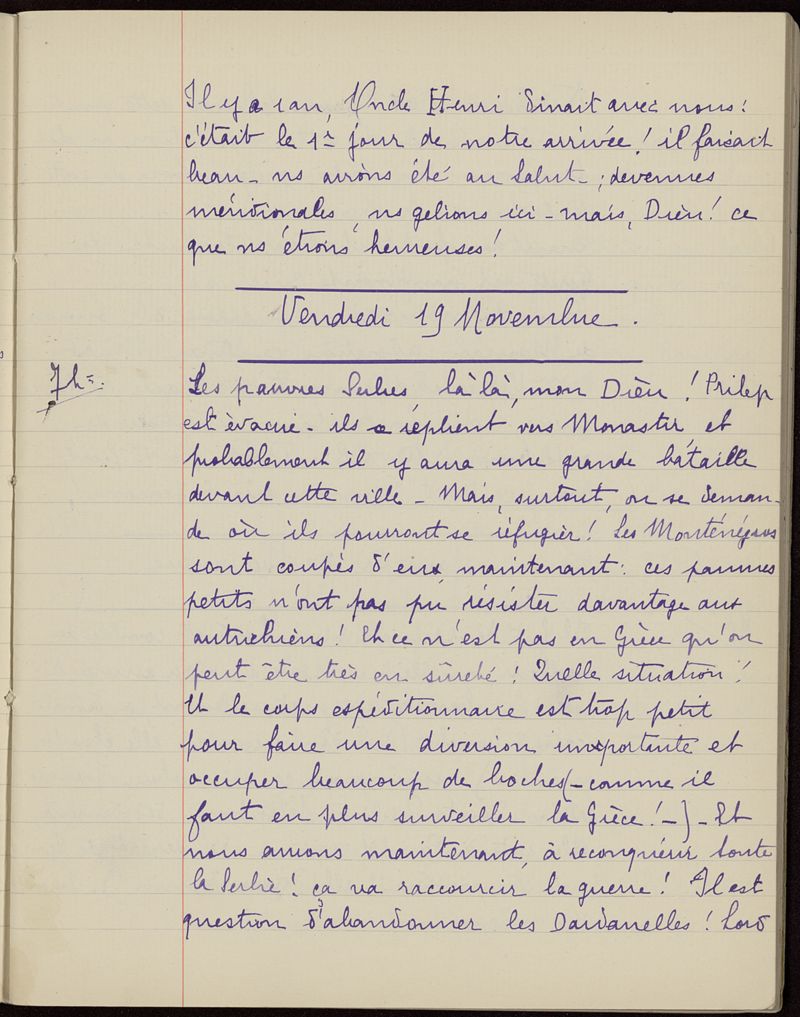 Il y a 1 an, Oncle Henri dinait avec nous :
c'était le 1er jour de notre arrivée ! il faisait
beau - ns avions été au Salut - ; devenues
méridionales, ns gelions ici - mais, Dieu ! ce
que ns étions heureuses !
Vendredi 19 Novembre.
7h=.
Les pauvres Serbes, là là, mon Dieu ! Prilep
est évacué - ils se replient vers Monastir, et
probablement il y aura une grande bataille
devant cette ville - Mais, surtout, on se deman-
de où ils pourront se réfugier ! Les Monténégros
sont coupés d'eux maintenant : ces pauvres
petits n'ont pas pu résister davantage aux
autrichiens ! Et ce n'est pas en Grèce qu'on
peut être très en sûreté ! Quelle situation !
Et le corps expéditionnaire est trop petit
pour faire une diversion importante et
occuper beaucoup de boches (- comme il
faut en plus surveiller la Grèce ! -) - Et
nous aurons maintenant, à reconquérir toute
la Serbie ! ça va raccourcir la guerre ! Il est
question d'abandonner les Dardanelles ! Lord